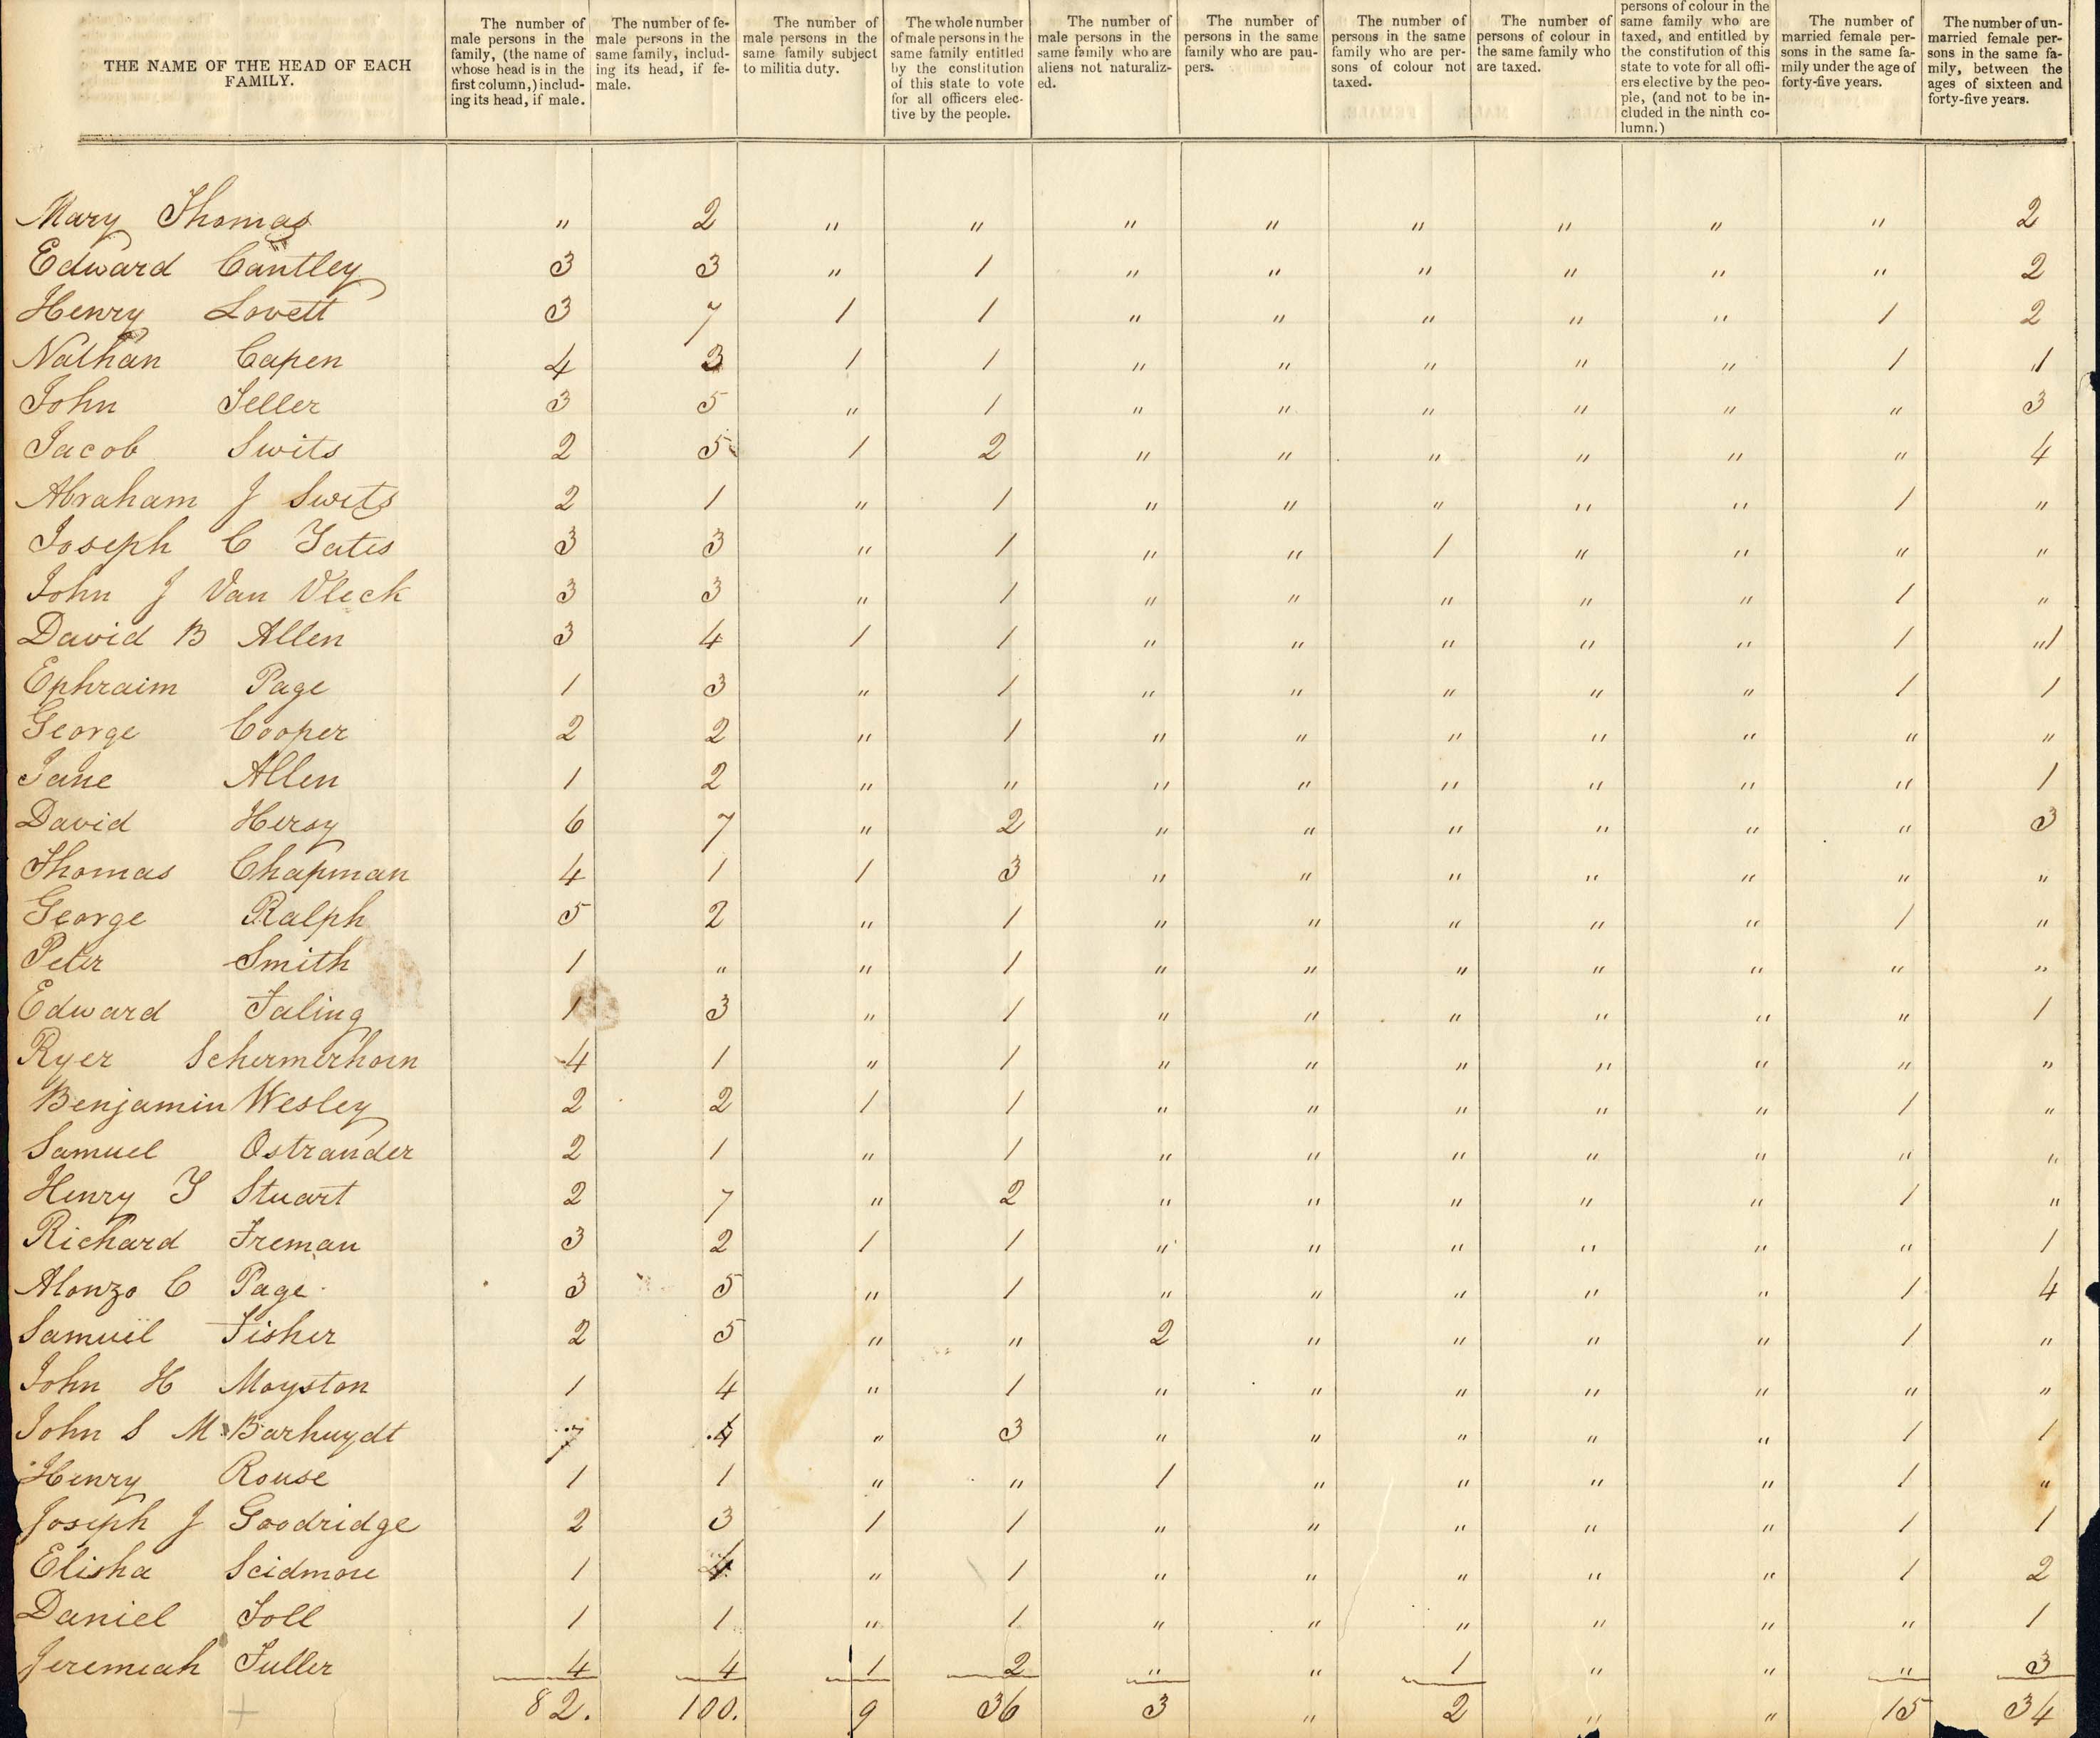 THE NAME OF THE HEAD OF EACH FAMILY. | The number of male persons in the family, (the name of whose head is in the first column,) including its head, if male. | The number of female persons in the same family, including its head, if female. | The number of male persons in the same family subject to militia duty. | The whole number of male persons in the same family entitled by the constitution of this state to vote for all officers elective by the people. | The number of male persons in the same family who are aliens not naturalized. | The number of persons in the same family who are paupers. | The number of persons in the same family who are persons of colour not taxed. | The number of persons of colour in the same family who are taxed. | persons of colour in the same family who are taxed, and entitled by the constitution of this state to vote for all officers elective by the people, (and not to be included in the ninth column.) | The number of married female persons in the same family under the age of forty-five years. | The number of unmarried female persons in the same family, between the ages of sixteen and forty-five years.
Mary Thomas " 2 " " " " " " " " 2
Edward Cantley 3 3 " 1 " " " " " " 2
Henry Lovett 3 7 1 1 " " " " " 1 2
Nathan Capen 4 3 1 1 " " " " " 1 1
John Teller 3 5 " 1 " " " " " " 3
Jacob Swits 2 5 1 2 " " " " " " 4
Abraham J Swits 2 1 " 1 " " " " " 1 "
Joseph C Yates 3 3 " 1 " " 1 " " " "
John J Van Vleck 3 3 " 1 " " " " " 1 "
David B Allen 3 4 1 1 " " " " " 1 "1
Ephraim Page 1 3 " 1 " " " " " 1 1
George Cooper 2 2 " 1 " " " " " " "
Jane Allen 1 2 " " " " " " " " 1
David Hersy 6 7 " 2 " " " " " " 3
Thomas Chapman 4 1 1 3 " " " " " " "
George Ralph 5 2 " 1 " " " " " 1 "
Peter Smith 1 " " 1 " " " " " " "
Edward Faling 1 3 " 1 " " " " " " 1
Ryer Schermerhorn 4 1 " 1 " " " " " " "
Benjamin Wesley 2 2 1 1 " " " " " 1 "
Samuel Ostrander 2 1 " 1 " " " " " " "
Henry Y Stuart 2 7 " 2 " " " " " 1 "
Richard Freman 3 2 1 1 " " " " " " 1
Alonzo C Page 3 5 " 1 " " " " " 1 4
Samuel Fisher 2 5 " " 2 " " " " 1 "
John H Moyston 1 4 " 1 " " " " " " "
John S M Barhuydt 7 4 " 3 " " " " " 1 1
Henry Rouse 1 1 " " 1 " " " " 1 "
Joseph J Goodridge 2 3 1 1 " " " " " 1 1
Elisha Scidmore 1 4 " 1 " " " " " 1 2
Daniel Toll 1 1 " 1 " " " " " " 1
Jeremiah Fuller 4 4 1 2 " " 1 " " " 3
82. 100. 9 36 3 " 2 " " 15 34